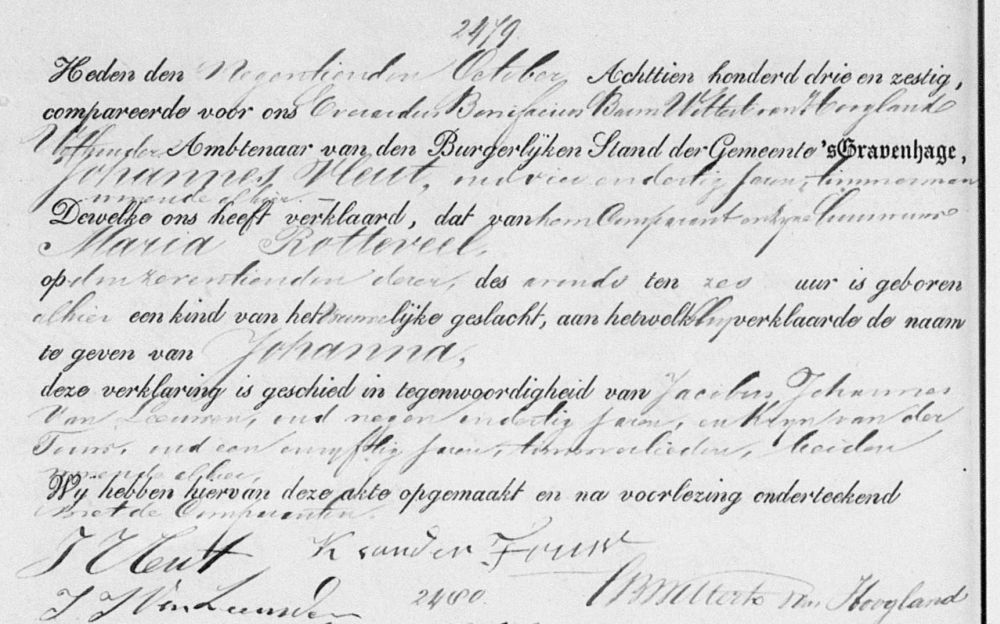 2479.
Heden den Negentienden October Achttien honderd drie en zestig,
compareerde voor ons Everardus Bonifacius Baron Wittert van Hoogland
Wethouder Ambtenaar van den Burgerlijken Stand der Gemeente 'sGravenhage,
Johannes Heut, oud vier en dertig jaren, timmerman
wonende alhier.
Dewelke ons heeft verklaard, dat van hem Comparant en zyne huisvrouw
Maria Rotteveel,
op den zeventienden dezer, des avonds ten zes uur is geboren
alhier een kind van het vrouwelijke geslacht, aan hetwelk hij verklaarde de naam
te geven van Johanna,
deze verklaring is geschied in tegenwoordigheid van Jacobus Johannes
Van Leeuwen, oud negen en dertig jaren, en Kryn van der
oud een en vyftig jaren, timmerlieden, beiden
wonende alhier,
Wij hebben hiervan deze akte opgemaakt en na voorlezing onderteekend
met de Comparanten.
J Heut K van der
J. J Van Leeuwen 2480. Wittert van Hoogland